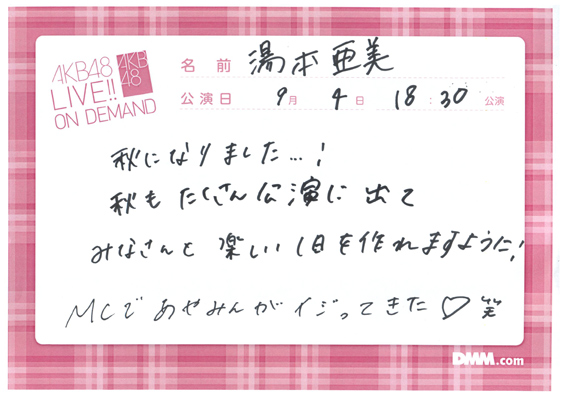 AKB48
LIVE!!
ON DEMAND
AKB
48
名前 湯本亜美
公演日 9月 4日 18:30 公演
秋になりました…!
秋もたくさん公演に出て
みなさんと楽しい1日を作れますように!
MCであやみんがイジってきた♡笑
DMM.com